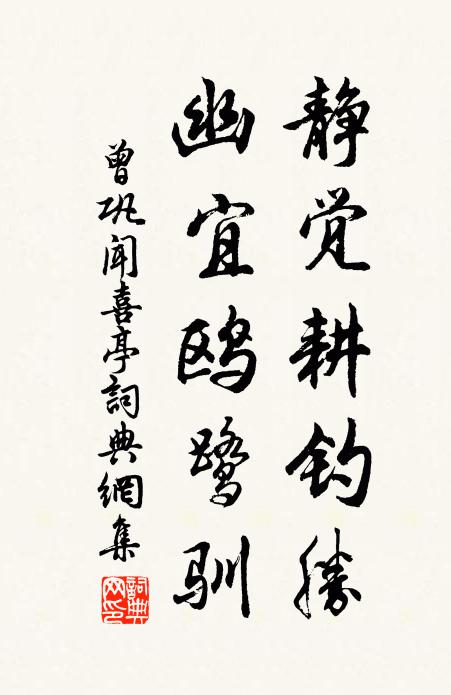 静觉耕钓勝
幽宜鸥鹭馴
曾巩闻喜亭詞典網集
詞典網印